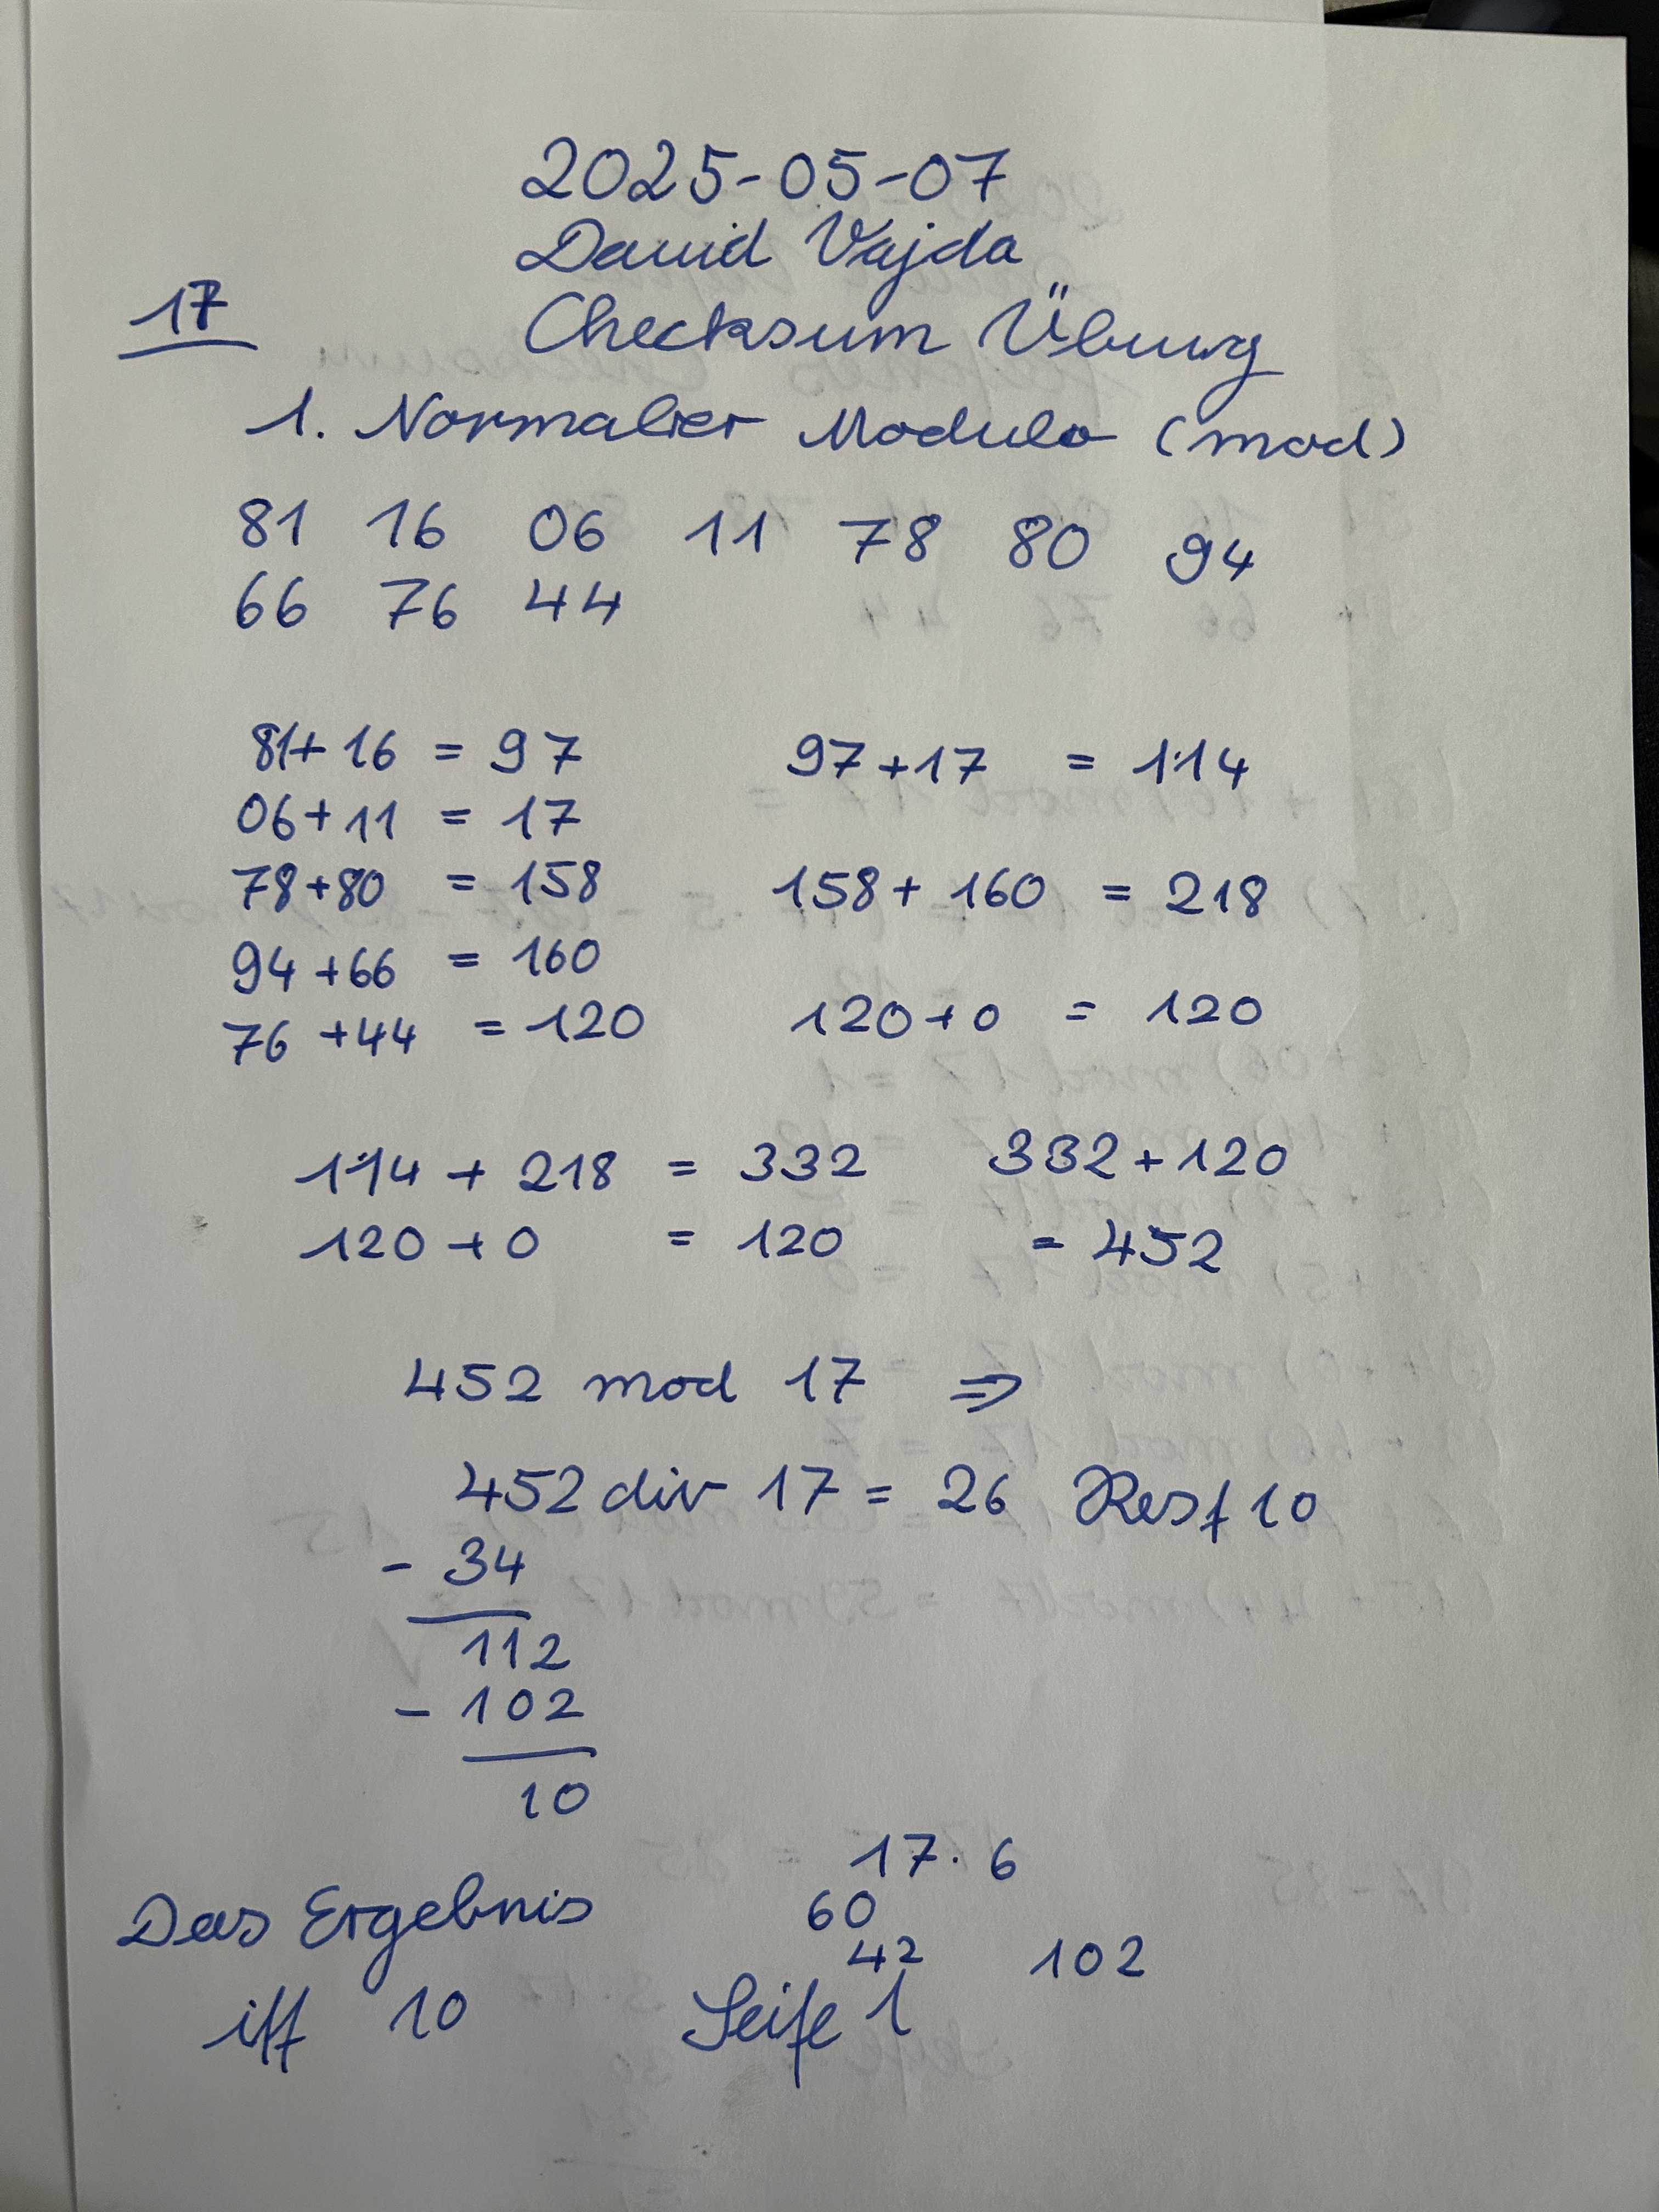 2025-05-07
David Vajda
17
Checksum Übung
1. Normaler Modulo (mod)
81 16 06 11 78 80 94
66 76 44
81+16 = 97 97+17 = 114
06+11 = 17
78+80 = 158 158+160 = 218
94+66 = 160
76+44 = 120 120+0 = 120
114 + 218 = 332 332+120
120+0 = 120 = 452
452 mod 17 ⇒
452 div 17 = 26 Rest 10
- 34
112
- 102
10
17·6
60
Das Ergebnis
42 102
iff 10 Seite 1